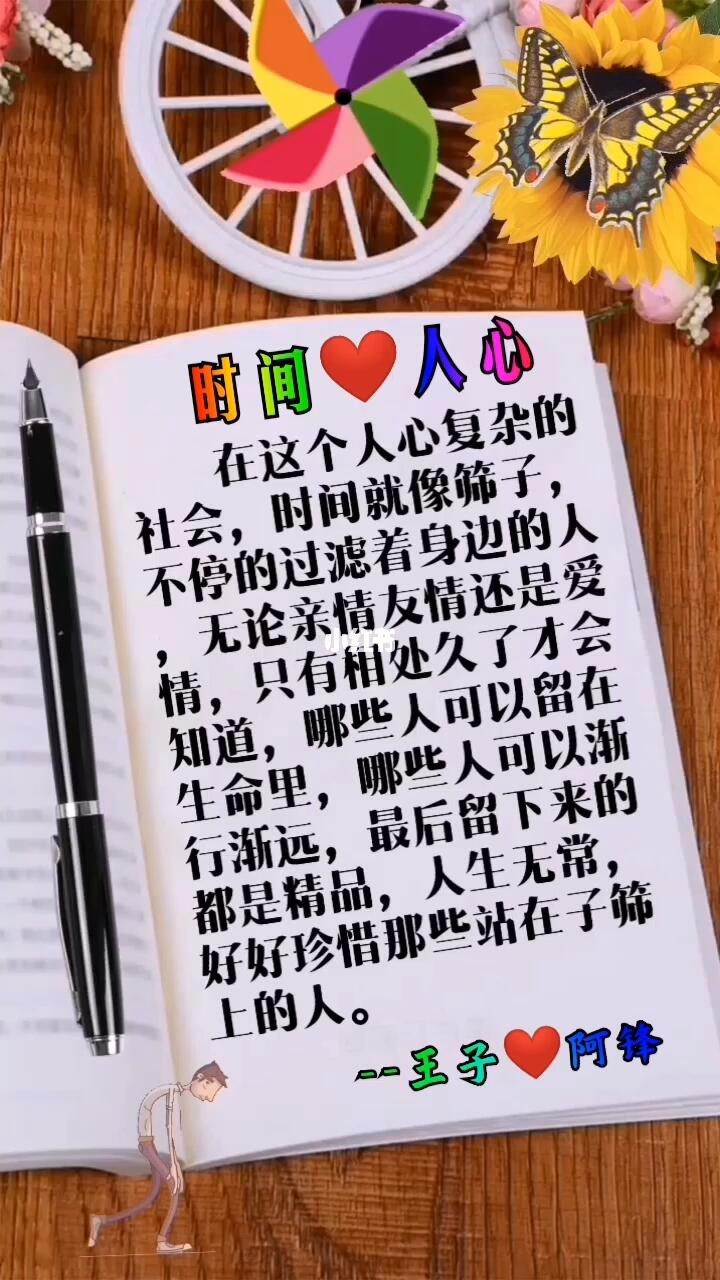 时间❤人心
在这个人心复杂的
社会，时间就像筛子，
不停的过滤着身边的人
，无论亲情友情还是爱
情，只有相处久了才会
知道，哪些人可以留在
生命里，哪些人可以渐
行渐远，最后留下来的
都是精品，人生无常，
好好珍惜那些站在子筛
上的人。
--王子❤阿锋
小红书